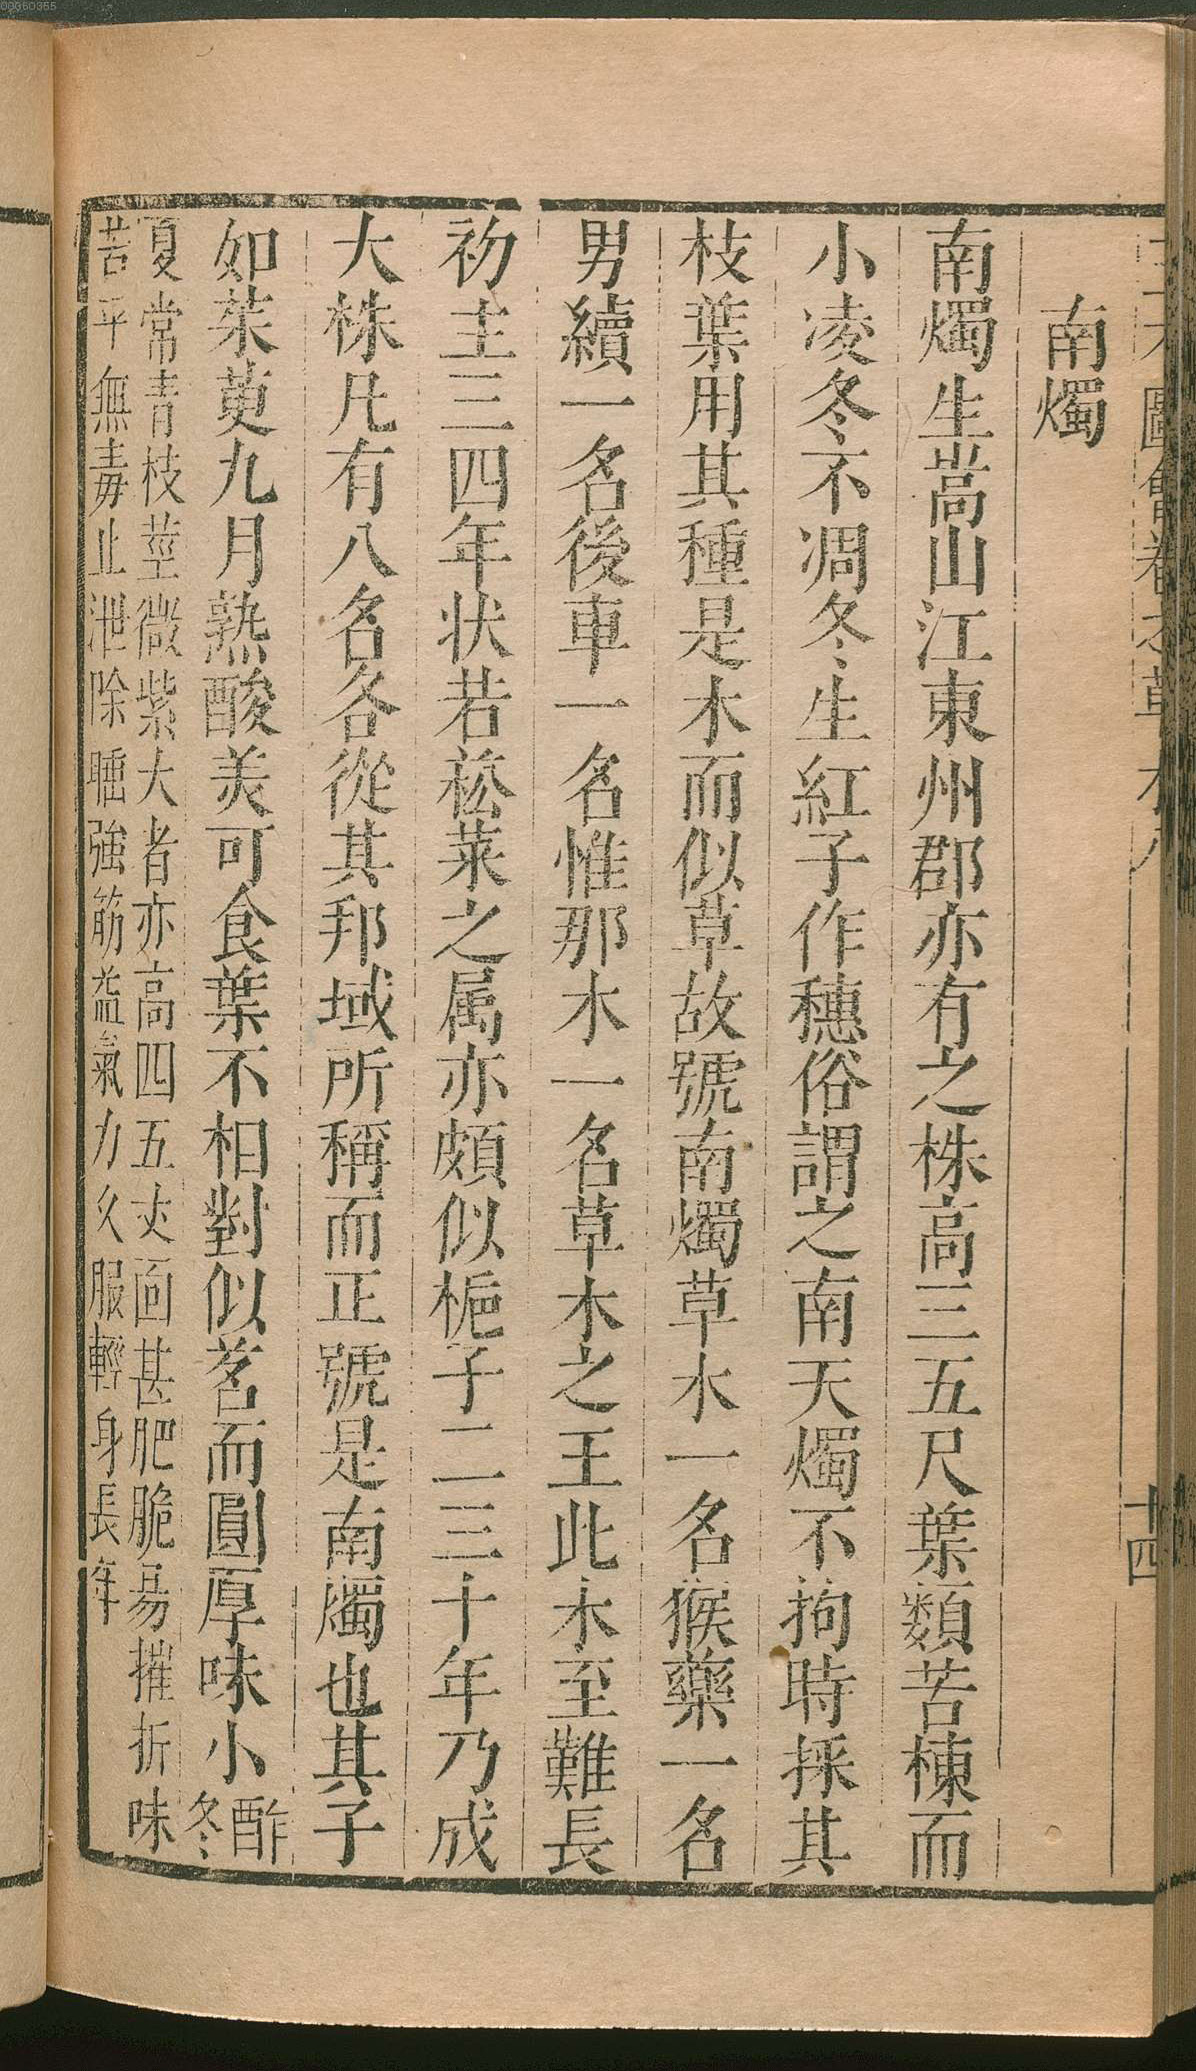 00050355
三才圖會卷
草木八
十四
南燭
南燭生嵩山江東州郡亦有之株高三五尺葉類苦楝而
小凌冬不凋冬生紅子作穗俗謂之南天燭不拘時採其
枝葉用其種是木而似草故號南燭草木一名猴藥一名
男續一名後車一名惟那木一名草木之王此木至難長
初生三四年状若菘菜之属亦頗似梔子二三十年乃成
大株凡有八名各從其邦域所稱而正號是南燭也其子
如茱萸九月熟酸美可食葉不相對似茗而圓厚味小酢冬
夏常青枝莖微紫大者亦高四五丈面甚肥脆易摧折味
苦平無毒止泄除睡強筋益氣力久服輕身長年